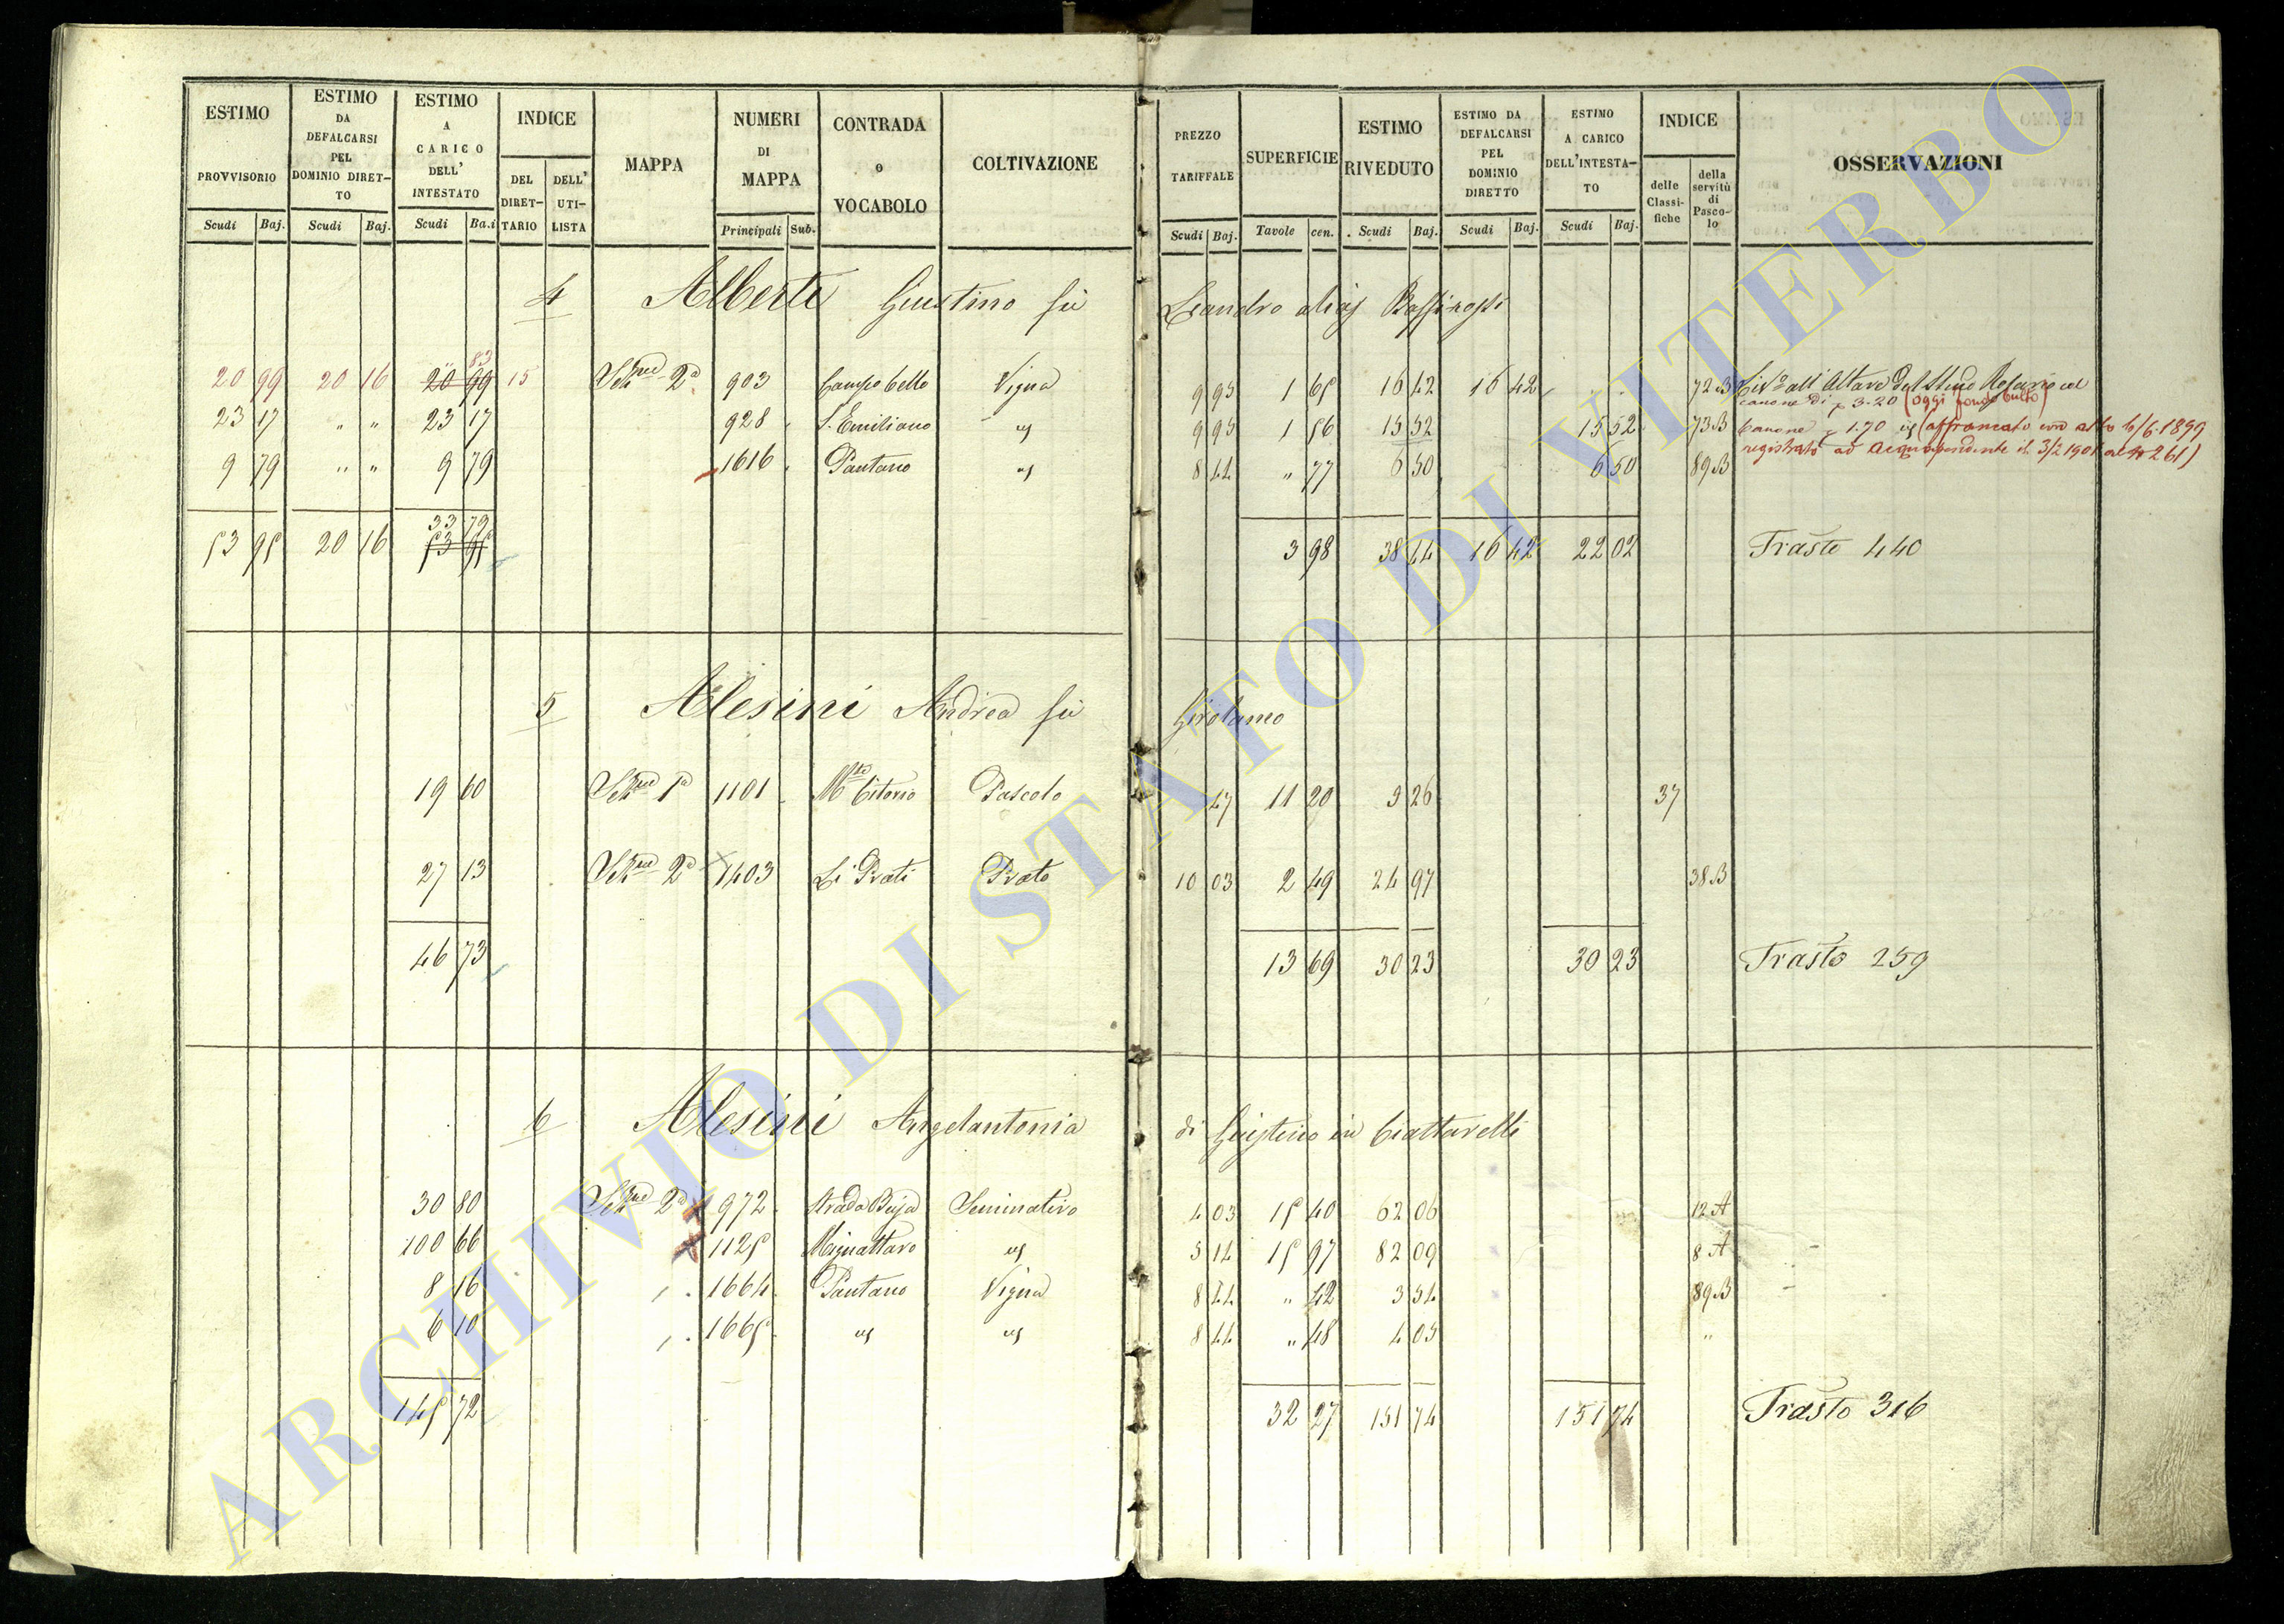 ESTIMO PROVVISORIO Scudi Baj.
ESTIMO DA DEFALCARSI PEL DOMINIO DIRET-TO Scudi Baj.
ESTIMO A CARICO DELL' INTESTATO Scudi Ba.i
INDICE DEL DIRET-TARIO DELL' UTI-LISTA
MAPPA
NUMERI DI MAPPA Principali Sub.
CONTRADA o VOCABOLO
COLTIVAZIONE
PREZZO TARIFFALE Scudi Baj.
SUPERFICIE Tavole cen.
ESTIMO RIVEDUTO Scudi Baj.
ESTIMO DA DEFALCARSI PEL DOMINIO DIRETTO Scudi Baj.
ESTIMO A CARICO DELL'INTESTA-TO Scudi Baj.
INDICE delle Classi-fiche della servitù di Pasco-lo
OSSERVAZIONI
4 Alberti Giustino fù Leandro alias
83
20 99 20 16 20 99 15 Sez.ne 2a 903 Campo bello Vigna 9 95 1 65 16 42 16 42 72 B Liv.o all'Altare del SSmo Rosario col
canone di 3.20 (oggi fondo Culto)
23 17 " " 23 17 928 S. Emiliano id 9 95 1 56 15 52 15 52 73 B Canone 1.70 id (affrancato con atto 6/6.1899
registrato ad Acquapendente il 3/2 1901 al N 261)
9 79 " " 9 79 1616 Pantano id 8 44 " 77 6 50 6 50 89 B
33 79
53 95 20 16 53 95 3 98 38 44 16 42 22 02 Trasto 440
5 Alesini Andrea fù Girolamo
19 60 Sez.ne 1a 1101 M.te Citorio Pascolo 47 11 20 5 26 37
27 13 Sez.ne 2a 1403 Li Prati Prato 10 03 2 49 24 97 38 B
46 73 13 69 30 23 30 23 Trasto 259
6 Alesini Angelantonia di Giustino in Ciattarelli
30 80 Sez.ne 2a 972 Strada Buja Seminativo 4 03 15 40 62 06 12 A
100 66 1125 Mignattaro id 5 14 15 97 82 09 8 A
8 16 1664 Pantano Vigna 8 44 " 42 3 54 89 B
6 10 1665 id id 8 44 " 48 4 05 "
145 72 32 27 151 74 151 74 Trasto 316
ARCHIVIO DI STATO DI VITERBO